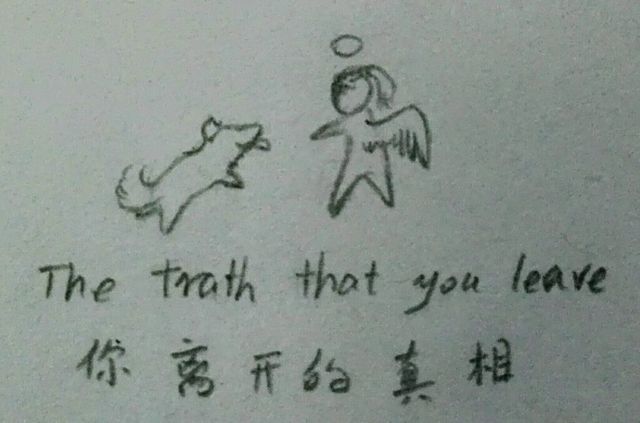 The trath that you leave
你离开的真相